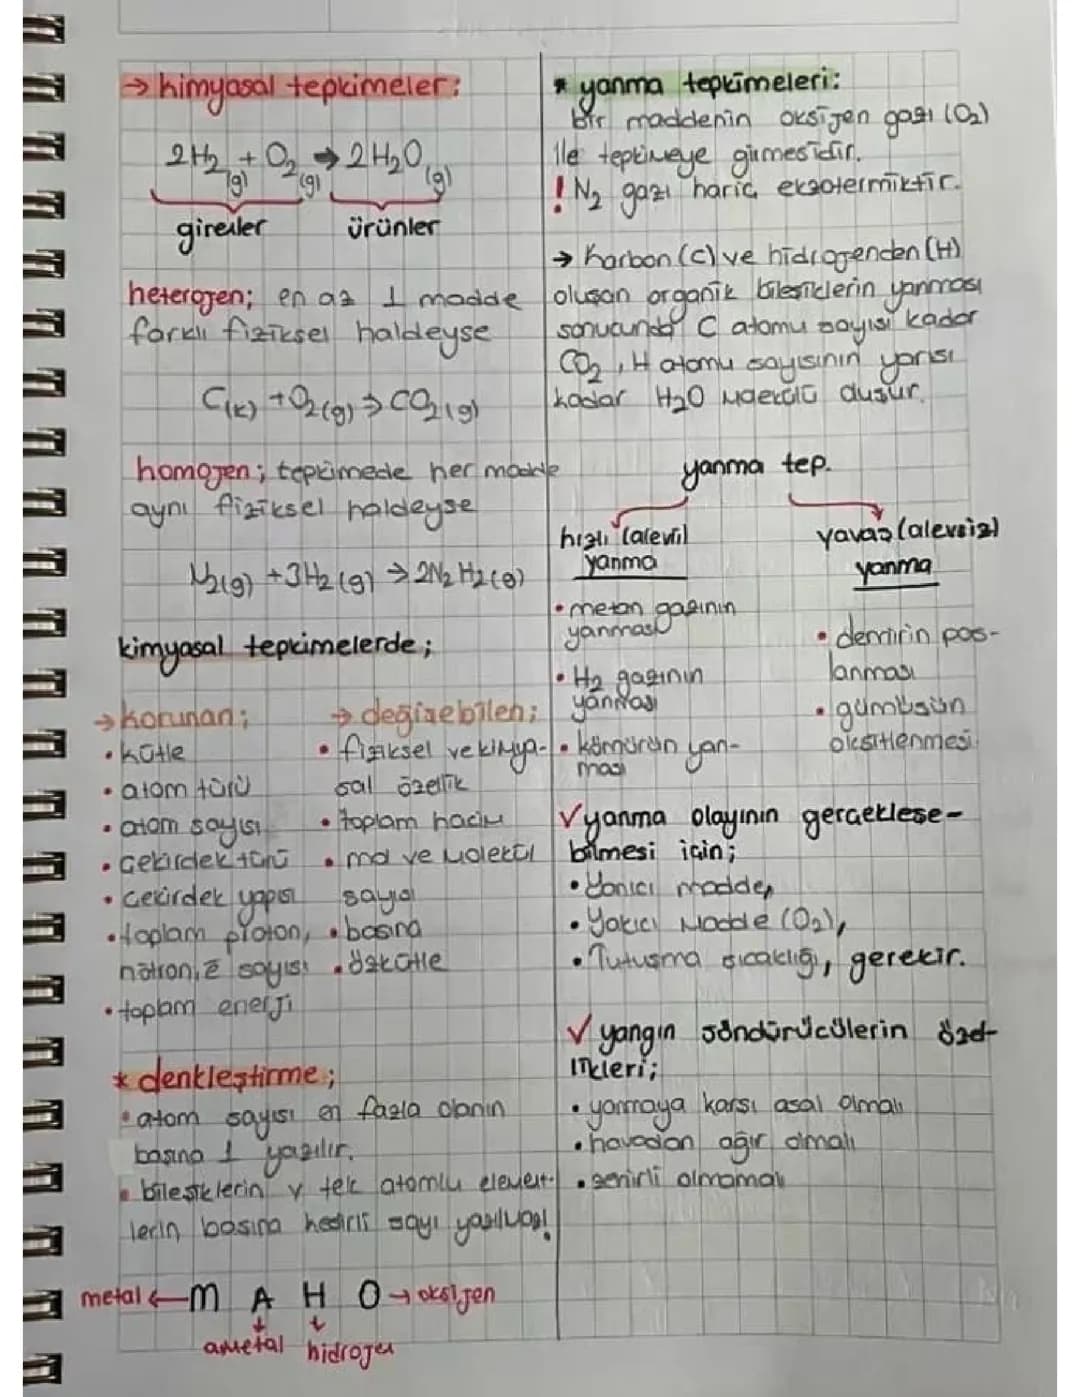 → kimyasal tepkimeler:
2H₂(g) + O₂(g) → 2H₂O(g)
girenler ürünler
heterojen; en az 1 madde
farklı fiziksel haldeyse
C(k) + O₂(g) → CO₂(g)
homojen; tepkimede her madde
aynı fiziksel haldeyse
N₂(g) + 3H₂(g) → 2N₂H₂(g)
kimyasal tepkimelerde;
→ korunan;
• kütle
• atom türü
• atom sayısı
• çekirdek türü
• çekirdek yapısı
• toplam proton,
nötron, ē sayısı
• toplam enerji
→ değişebilen;
• fiziksel ve kimya-
sal özellik
• toplam hacim
• mol ve molekül
sayısı
• basınç
• özkütle
* denkleştirme;
• atom sayısı en fazla olanın
başına 1 yazılır.
• bileşiklerin v tek atomlu element-
lerin başına kesirli sayı yazılmaz!
metal ← M A H O → oksijen
ametal hidrojen
* yanma tepkimeleri:
bir maddenin oksijen gazı (O₂)
ile tepkimeye girmesidir.
! N₂ gazı hariç ekzotermiktir.
→ Karbon (C) ve hidrojenden (H)
oluşan organik bileşiklerin yanması
sonucunda C atomu sayısı kadar
CO₂, H atomu sayısının yarısı
kadar H₂O molekülü oluşur.
yanma tep.
hızlı (alevli)
yanma
• metan gazının
yanması
• H₂ gazının
yanması
• kömürün yan-
ması
yavaş (alevsiz)
yanma
• demirin pas-
lanması
• gümüşün
oksitlenmesi
✓ yanma olayının gerçekleşe-
bilmesi için;
• Yanıcı madde,
• Yakıcı Madde (O₂),
• Tutuşma sıcaklığı, gerekir.
✓ yangın söndürücülerin özel-
likleri;
• yanmaya karşı asal olmalı
• havadan ağır olmalı
• zehirli olmamalı